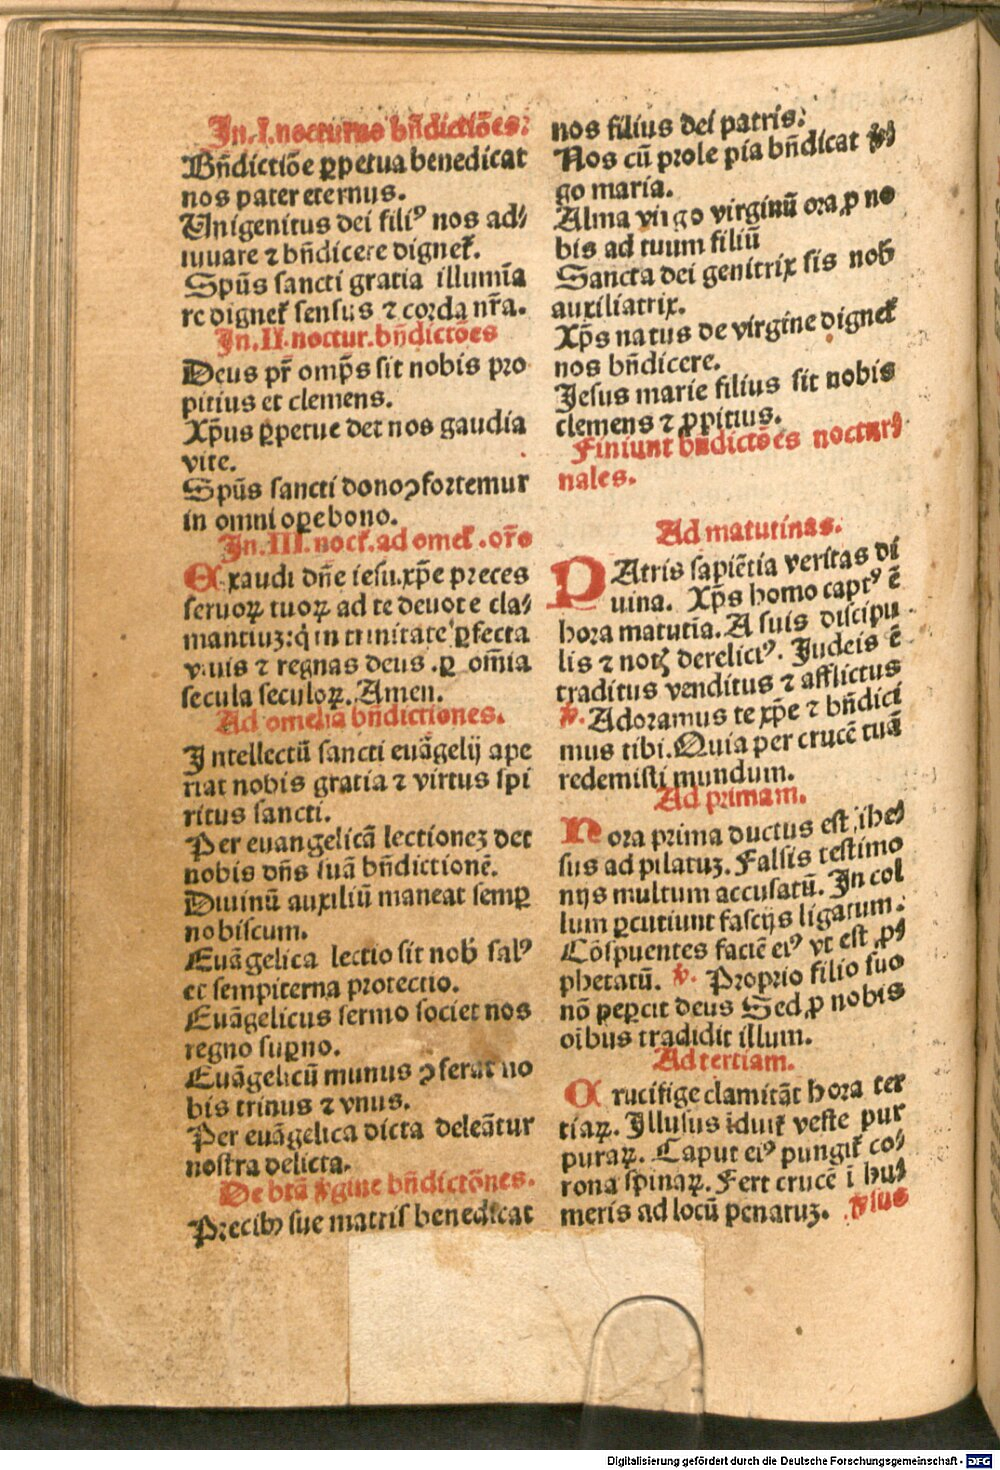 In.I.nocturno bn̄dictiōes:
Bn̄dictiōe ꝑpetua benedicat
nos pater eternus.
Unigenitus dei filiꝰ nos ad⸗
iuuare ⁊ bn̄dicere dignet᷑.
Spūs sancti gratia illumīa
re dignet᷑ sensus ⁊ corda nr̄a.
In.II.noctur.bn̄dictōes
Deus pr̄ omp̄s sit nobis pro
pitius et clemens.
Xp̄us ꝑpetue det nos gaudia
vite.
Spūs sancti dono ꝯfortemur
in omni oꝑe bono.
In.III.noct᷑.ad omel᷑.or̄o
Exaudi dn̄e iesu.xp̄e preces
seruoꝝ tuoꝝ ad te deuote cla⸗
mantiuʒ:q̇ in trinitate ꝑfecta
viuis ⁊ regnas deus .ꝑ om̄ia
secula seculoꝝ. Amen.
Ad omelia bn̄dictiones.
Intellectū sancti euāgelij ape
riat nobis gratia ⁊ virtus spi
ritus sancti.
Per euangelicā lectioneʒ det
nobis dn̄s suā bn̄dictionē.
Diuinū auxiliū maneat semꝑ
nobiscum.
Euāgelica lectio sit nob̄ salꝰ
et sempiterna protectio.
Euāgelicus sermo societ nos
regno suꝑno.
Euāgelicū munus ꝯferat no
bis trinus ⁊ vnus.
Per euāgelica dicta deleātur
nostra delicta.
De btā v̄gine bn̄dictōnes.
Precibꝰ sue matris benedicat
nos filius dei patris.
Nos cū prole pia bn̄dicat vir⸗
go maria.
Alma virgo virginū ora ꝓ no
bis ad tuum filiū
Sancta dei genitrix sis nob̄
auxiliatrix.
Xp̄s natus de virgine dignet᷑
nos bn̄dicere.
Jesus marie filius sit nobis
clemens ⁊ ꝓpitius.
Finiunt bn̄dictōes noctur⸗
nales.
Ad matutinas.
PAtris sapiētia veritas di
uina. Xp̄s homo captꝰ ē
hora matutīa. A suis discipu
lis ⁊ notꝭ derelictꝰ. Judeis ē
traditus venditus ⁊ afflictus
℣. Adoramus te xp̄e ⁊ bn̄dici
mus tibi.Quia per crucē tuā
redemisti mundum.
Ad primam.
Hora prima ductus est ihe⸗
sus ad pilatuʒ. Falsis testimo
nijs multum accusatū. In col
lum ꝑcutiunt fascijs ligatum.
Cōspuentes faciē eiꝰ vt est ꝓ⸗
phetatū. ℣. Proprio filio suo
nō peꝑcit deus Sed ꝓ nobis
oībus tradidit illum.
Ad tertiam.
Crucifige clamitāt hora ter
tiaꝝ. Illusus iduit᷑ veste pur
puraꝝ. Caput eiꝰ pungit᷑ co⸗
rona spinaꝝ. Fert crucē ī hu⸗
meris ad locū penatuʒ. v̄sus
Digitalisierung gefördert durch die Deutsche Forschungsgemeinschaft - DFG